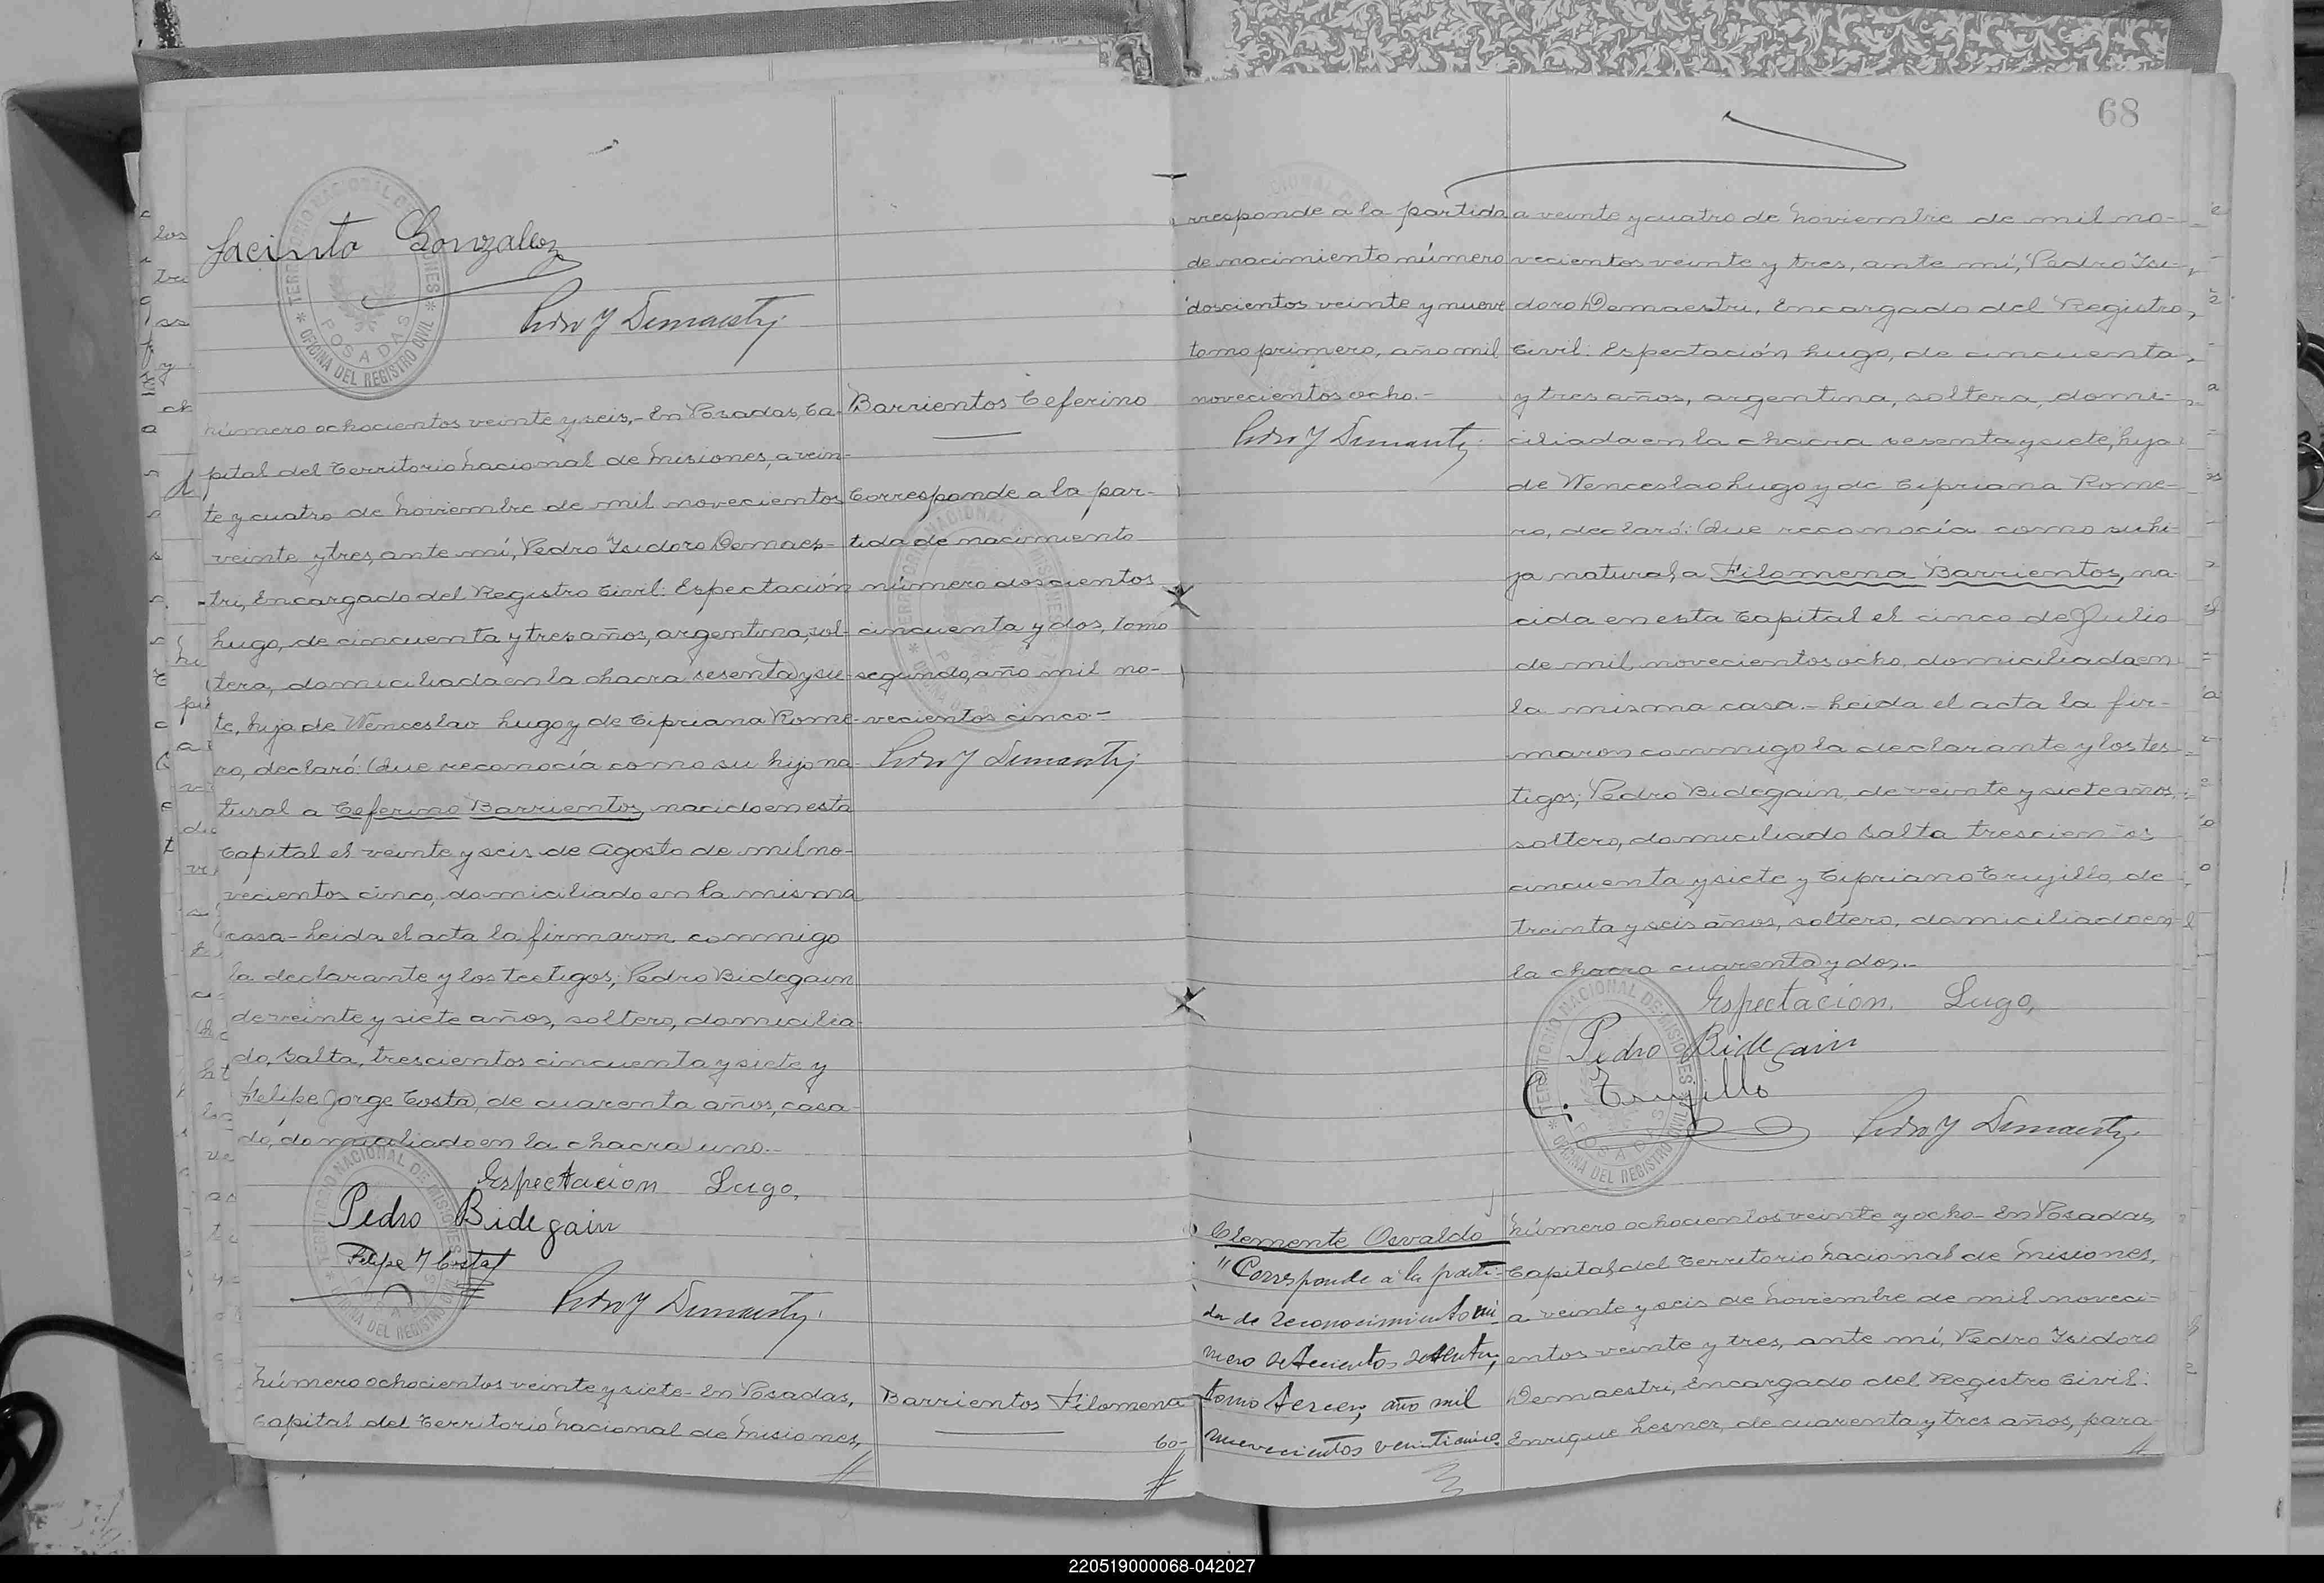 Jacinto Gonzalez
Pedro Y Demaestri
Número ochocientos veinte y seis,- En Posadas, Ca-
pital del Territorio Nacional de Misiones, a vein-
te y cuatro de Noviembre de mil novecientos
veinte y tres, ante mí, Pedro Isidoro Demaes-
tri, Encargado del Registro Civil: Espectación
Lugo, de cincuenta y tres años, argentina, sol-
tera, domiciliada en la chacra sesenta y sie-
te, hija de Wenceslao Lugo y de Cipriana Rome-
ro, declaró: Que reconocía como su hijo na-
tural a Ceferino Barrientos, nacido en esta
Capital el veinte y seis de Agosto de mil no-
vecientos cinco, domiciliado en la misma
casa - Leida el acta la firmaron conmigo
la declarante y los testigos; Pedro Bidegain
de veinte y siete años, soltero, domicilia-
do, Salta, trescientos cincuenta y siete y
Felipe Jorge Costa, de cuarenta años, casa-
do, domiciliado en la chacra uno.-
Espectacion Lugo,
Pedro Bidegain
Felipe J Costa
Pedro Y Demaestri
Número ochocientos veinte y siete- En Posadas,
Capital del Territorio Nacional de Misiones,
Barrientos Ceferino
Corresponde a la par-
tida de nacimiento
número doscientos
cincuenta y dos, tomo
segundo, año mil no-
vecientos cinco-
Pedro Y Demaestri
Barrientos Filomena
Co-
68
rresponde a la partida
de nacimiento número
doscientos veinte y nueve
tomo primero, año mil
novecientos ocho.-
Pedro Y Demaestri
a veinte y cuatro de Noviembre de mil no-
vecientos veinte y tres, ante mí, Pedro Isi-
doro Demaestri, Encargado del Registro
Civil: Espectación Lugo, de cincuenta
y tres años, argentina, soltera, domi-
ciliada en la chacra sesenta y siete, hija
de Wenceslao Lugo y de Cipriana Rome-
ro, declaró: Que reconocía como su hi-
ja natural, a Filomena Barrientos, na-
cida en esta Capital el cinco de Julio
de mil novecientos ocho, domiciliada en
la misma casa.- Leida el acta la fir-
maron conmigo la declarante y los tes-
tigos; Pedro Bidegain, de veinte y siete años,
soltero, domiciliado Salta trescientos
cincuenta y siete y Cipriano Trujillo, de
treinta y seis años, soltero, domiciliado en
la chacra cuarenta y dos.-
Espectacion. Lugo,
Pedro Bidegain
C. Trujillo
Pedro Y Demaestri
Clemente Osvaldo
"Corresponde a la parti-
da de reconocimiento nú-
mero setecientos setenta,
tomo tercero, año mil
nuevecientos veinticinco.
Número ochocientos veinte y ocho- En Posadas,
Capital, del Territorio Nacional de Misiones,
a veinte y seis de Noviembre de mil noveci-
entos veinte y tres, ante mí, Pedro Isidoro
Demaestri, Encargado del Registro Civil:
Enrique Lesner, de cuarenta y tres años, para-
TERRITORIO NACIONAL DE MISIONES
OFICINA DEL REGISTRO CIVIL
POSADAS
220519000068-042027